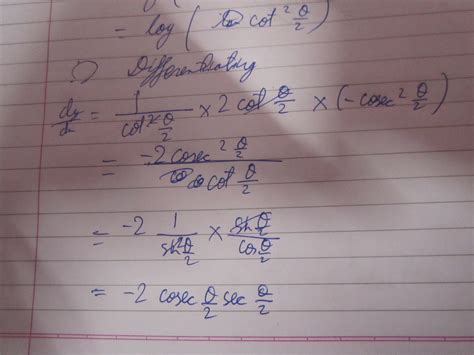 = log ( cot² θ/2 )
Differentiating
dy/dx = 1/cot² θ/2 × 2 cot θ/2 × (-cosec² θ/2)
= -2 cosec² θ/2 / cot θ/2
= -2 1/sin² θ/2 × sin θ/2 / cos θ/2
= -2 cosec θ/2 sec θ/2